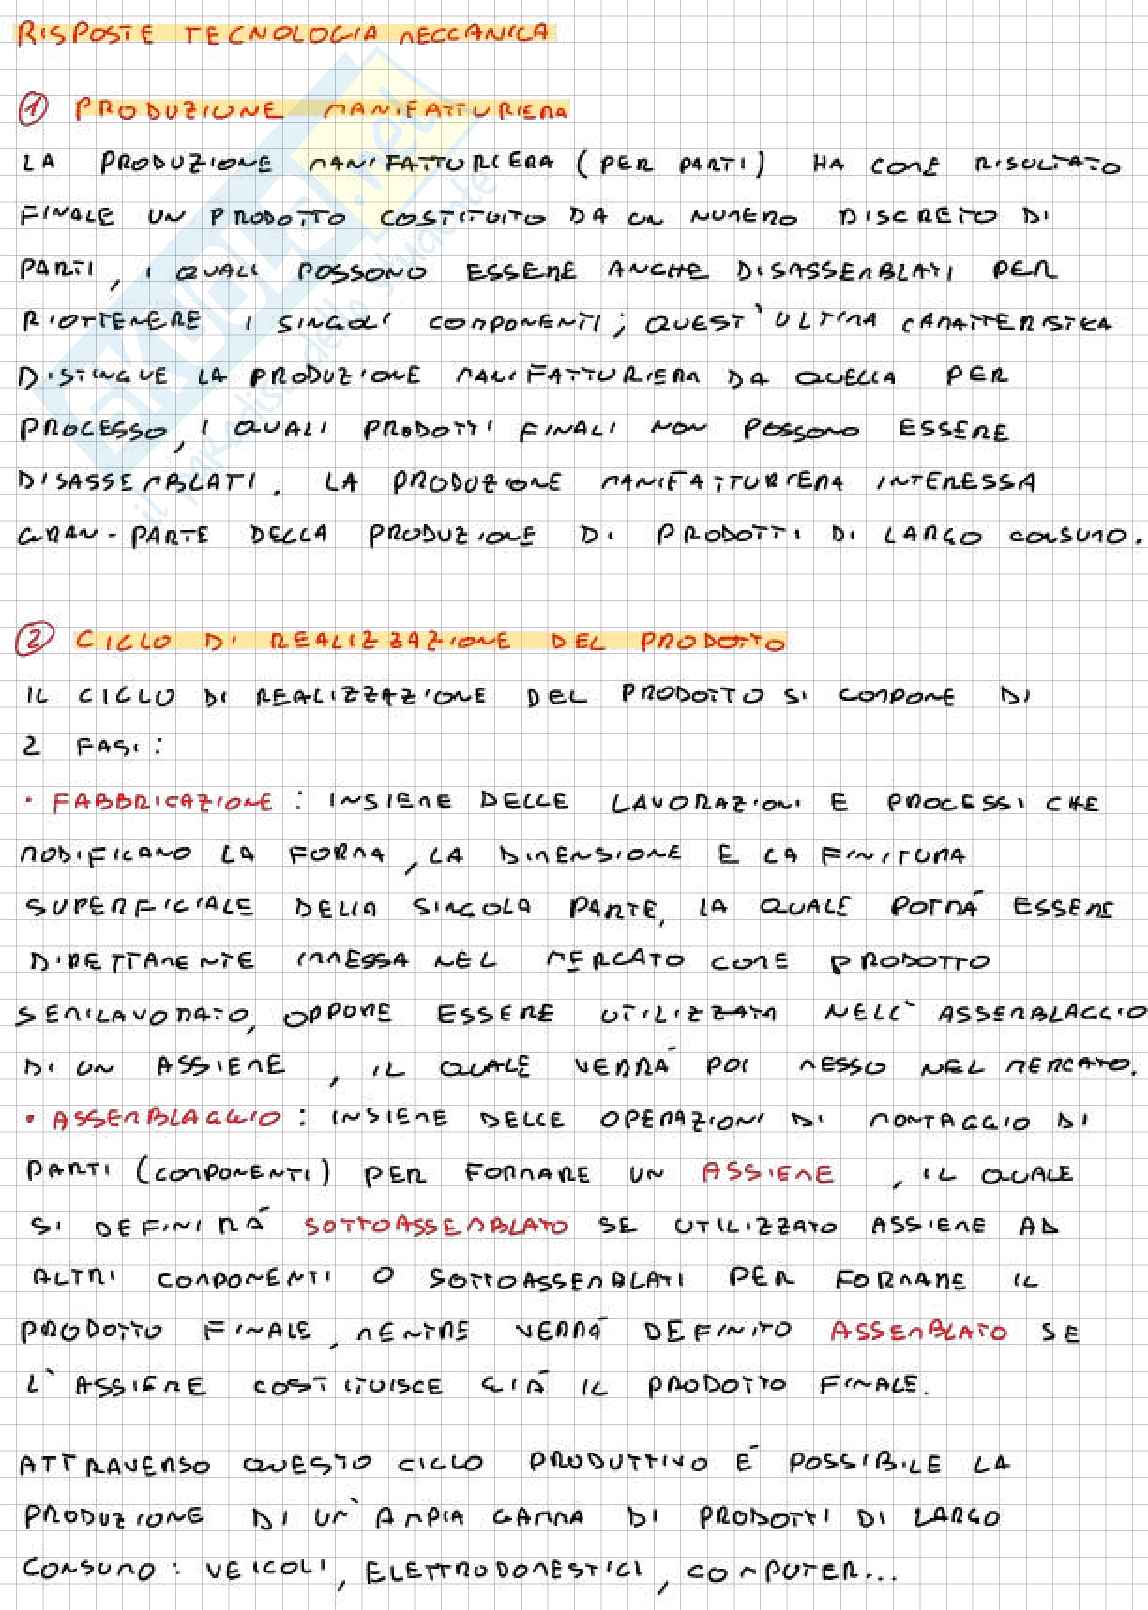 RISPOSTE TECNOLOGIA MECCANICA
1 PRODUZIONE MANIFATTURIERA
LA PRODUZIONE MANIFATTURIERA (PER PARTI) HA COME RISULTATO
FINALE UN PRODOTTO COSTITUITO DA UN NUMERO DISCRETO DI
PARTI, I QUALI POSSONO ESSERE ANCHE DISASSEMBLATI PER
RIOTTENERE I SINGOLI COMPONENTI; QUEST'ULTIMA CARATTERISTICA
DISTINGUE LA PRODUZIONE MANIFATTURIERA DA QUELLA PER
PROCESSO, I QUALI PRODOTTI FINALI NON POSSONO ESSERE
DISASSEMBLATI. LA PRODUZIONE MANIFATTURIERA INTERESSA
GRAN-PARTE DELLA PRODUZIONE DI PRODOTTI DI LARGO CONSUMO.
2 CICLO DI REALIZZAZIONE DEL PRODOTTO
IL CICLO DI REALIZZAZIONE DEL PRODOTTO SI COMPONE DI
2 FASI:
• FABBRICAZIONE: INSIEME DELLE LAVORAZIONI E PROCESSI CHE
MODIFICANO LA FORMA, LA DIMENSIONE E LA FINITURA
SUPERFICIALE DELLA SINGOLA PARTE, LA QUALE POTRÀ ESSERE
DIRETTAMENTE IMMESSA NEL MERCATO COME PRODOTTO
SEMILAVORATO, OPPURE ESSERE UTILIZZATA NELL'ASSEMBLAGGIO
DI UN ASSIEME, IL QUALE VERRÀ POI MESSO NEL MERCATO.
• ASSEMBLAGGIO: INSIEME DELLE OPERAZIONI DI MONTAGGIO DI
PARTI (COMPONENTI) PER FORMARE UN ASSIEME, IL QUALE
SI DEFINIRÀ SOTTOASSEMBLATO SE UTILIZZATO ASSIEME AD
ALTRI COMPONENTI O SOTTOASSEMBLATI PER FORMARE IL
PRODOTTO FINALE, MENTRE VERRÀ DEFINITO ASSEMBLATO SE
L'ASSIEME COSTITUISCE GIÀ IL PRODOTTO FINALE.
ATTRAVERSO QUESTO CICLO PRODUTTIVO È POSSIBILE LA
PRODUZIONE DI UN'AMPIA GAMMA DI PRODOTTI DI LARGO
CONSUMO: VEICOLI, ELETTRODOMESTICI, COMPUTER...
SKUOLA.net
il paradiso dello studente